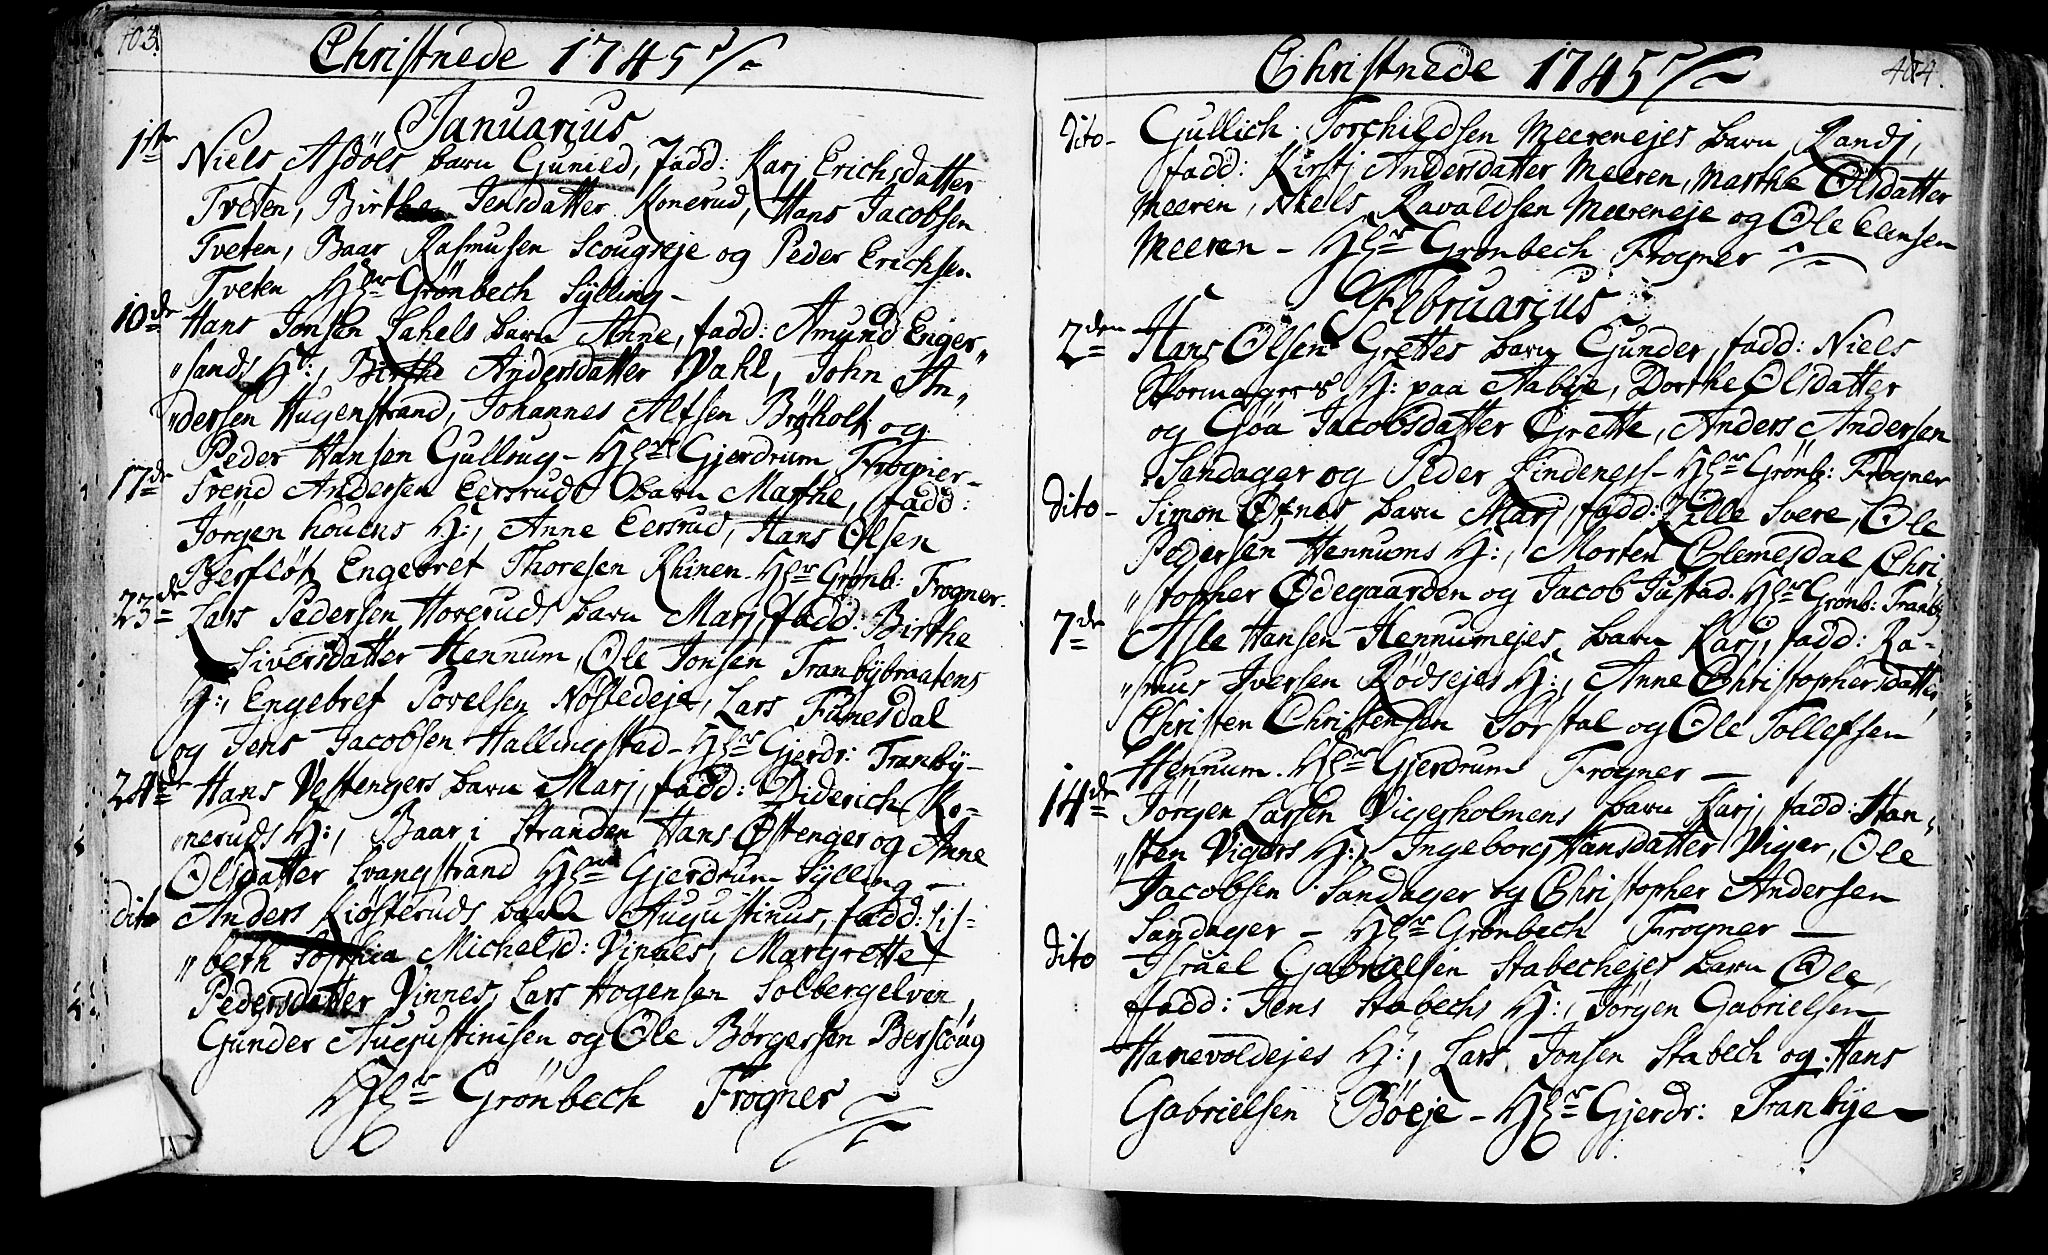 403.
Christnede 1745
Januarius
1ste Niels Asdöls barn Gunild, fadd: Karj Erichsdatter
Tveten, Birthe Jensdatter Konerud, Hans Jacobsen
Tveten, Baar Rasmusen Scougseje og Peder Erichsen
Tveten Hr Grönbech Sylling -
10de Hans Jonsen Lahels barn Anne, fadd: Amund Enger„
„sands H:, Birthe Andersdatter Vahl, John An„
„dersen Hugenstrand, Johannes Alfsen Bröholt og
Peder Hansen Gullaug - Hr Gjerdrum Frogner -
17de Svend Andersen Eersruds barn Marthe, fadd:
Jörgen houens H:, Anne Eersrud, Hans Olsen
Berflöt, Engebret Thoresen Rhinen. Hr Grönb: Frogner.
23de Lars Pedersen Hoveruds barn Marj fadd: Birthe
Siversdatter Hennum, Ole Jonsen Tranbybraatens
H:, Engebret Povelsen Nostedeje, Lars Fünesdal
og Jens Jacobsen Hallingstad - Hr Gjerdr: Tranby -
24de Hans Vestengers barn Marj, fadd: Diderich Ko-
„neruds H:, Baar i Stranden Hans Östenger og Anne
Olsdatter Svangstrand Hr Gjerdrum Sylling -
dito Anders Kiösteruds barn Augustinus, fadd: Lis-
„beth Sophia Michelsd: Vinnes, Margrette
Pedersdatter Vinnes, Lars Hogensen Solbergelven,
Gunder Augustinisen og Ole Börgersen Berscoug
Hr Grönbech Frogner
404.
Christnede 1745
dito - Gullich Torchildsen Meerenejes barn Randj,
fadd: Kirstj Andersdatter Meeren, Marthe Olsdatter
Meeren, Niels Ravaldsen Meereneje og Ole Elensen
Meeren - Hr Grönbech Frogner
Februarius
2den Hans Olsen Grettes barn Gunder, fadd: Niels
H: paa Aabÿe, Dorthe Olsdatter
og Goa Jacobsdatter Grette, Anders Andersen
Sandager og Peder Lindeness - Hr Grönb: Frogner
dito - Simon Öfnes barn Marj, fadd: Zille Svere, Ole
Pedersen Hennums H:, Morten Clemesdal Chri„
„stopher Ödegaarden og Jacob Justad. Hr Grönb: Tranby
7de Asle Hansen Hennumejes barn Karj, fadd: Ra-
„smus Iversen Rödsejes H:, Anne Christophersdatter,
Christen Christensen Sörstal og Ole Tollefsen
Hennum. Hr Gjerdrum Frogner -
14de Jörgen Larsen Vigerholmens barn Karj, fadd: Han„
„sten Vigers H:, Ingeborg Hansdatter Viger, Ole
Jacobsen Sandager og Christopher Andersen
Sandager - Hr Grönbech Frogner -
dito Israel Gabrielsen Stabechejes barn Ole,
fadd: Jens Stabechs H:, Jörgen Gabrielsen
Hanevoldejes H:, Lars Jonsen Stabech og Hans
Gabrielsen Böeje - Hr Gjerdr: Tranbye -